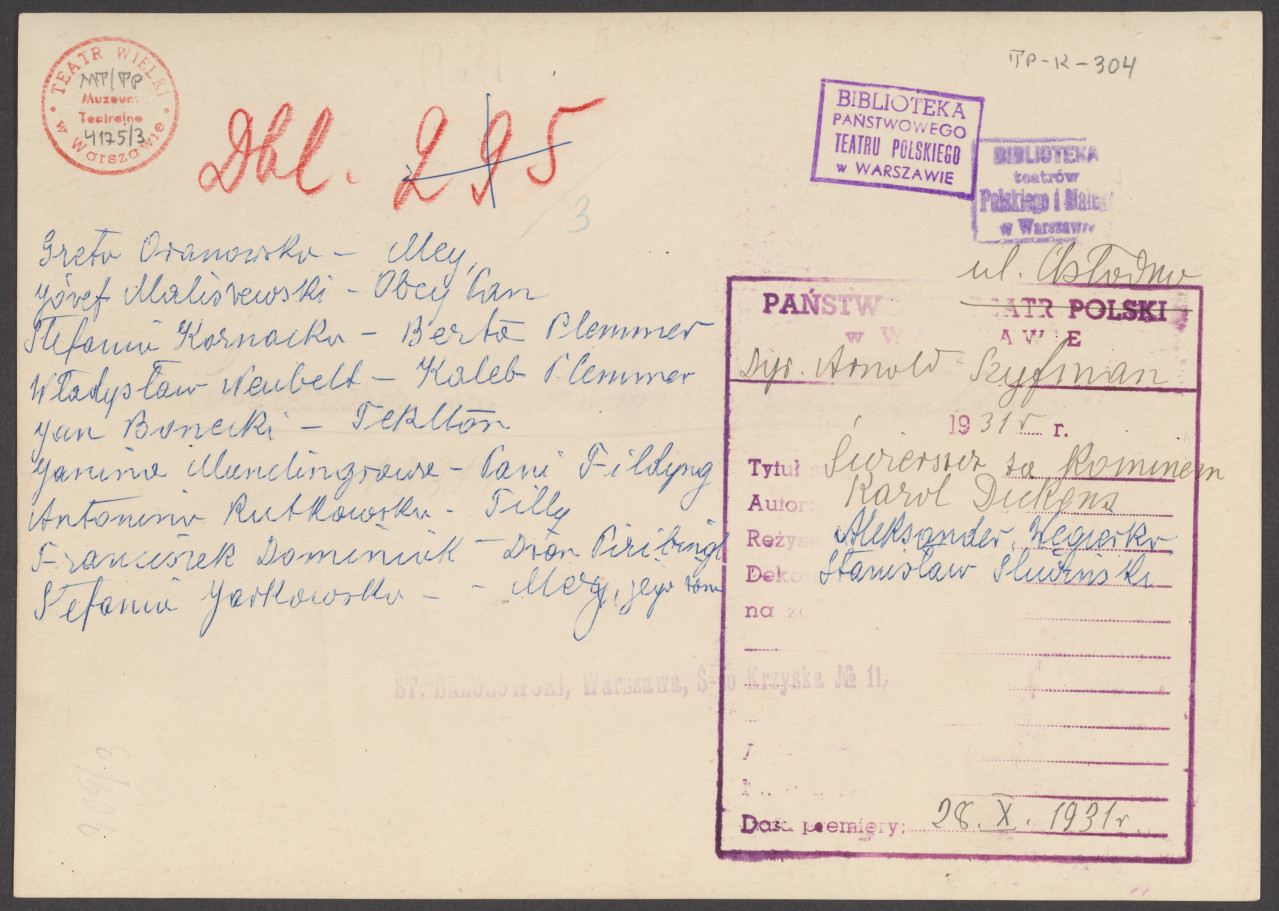 TP-R-304
TEATR WIELKI
MT/TP
Muzeum
Teatralne
4175/3
w Warszawie
Dbl. 295
3
BIBLIOTEKA
PAŃSTWOWEGO
TEATRU POLSKIEGO
w WARSZAWIE
BIBLIOTEKA
teatrów
Polskiego i Małego
w Warszawie
Greta Oranowska – Mey,
Józef Maliszewski – Obcy Pan
Stefania Kornacka – Berta Plemmer
Władysław Neubelt – Kaleb Plemmer
Jan Bonecki – Teklton
Janina Mundingrowa – Pani Fildyng
Antonina Rutkowska – Tilly
Franciszek Dominiak – Dżon Piribingl
Stefania Jarkowska – Mery, jego żona
ul. Chłodna
PAŃSTW TEATR POLSKI
w W AWIE
Dyr. Arnold Szyfman
1931 r. r.
Tytuł Świerszcz za kominem
Autor: Karol Dickens
Reżyse Aleksander Węgierko
Deko Stanisław Śliwiński
na
ST. BRZOZOWSKI, Warszawa, Ś-to Krzyska № 11,
Data premiery: 28. X. 1931 r.
304/3